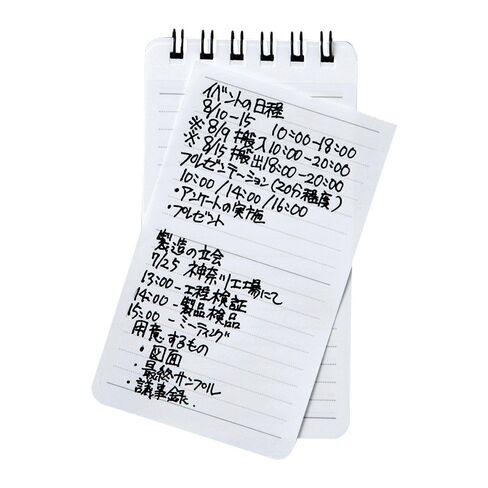 イベントの日程
8/10-15 10:00-18:00
※8/9 搬入 10:00-20:00
※8/15 搬出 18:00-20:00
プレゼンテーション(20分程度)
10:00/14:00/16:00
・アンケートの実施
・プレゼント
製造の立会
7/25 神奈川工場にて
13:00-工程検証
14:00-製品検品
15:00-ミーティング
用意するもの
・図面
・最終サンプル
・議事録.